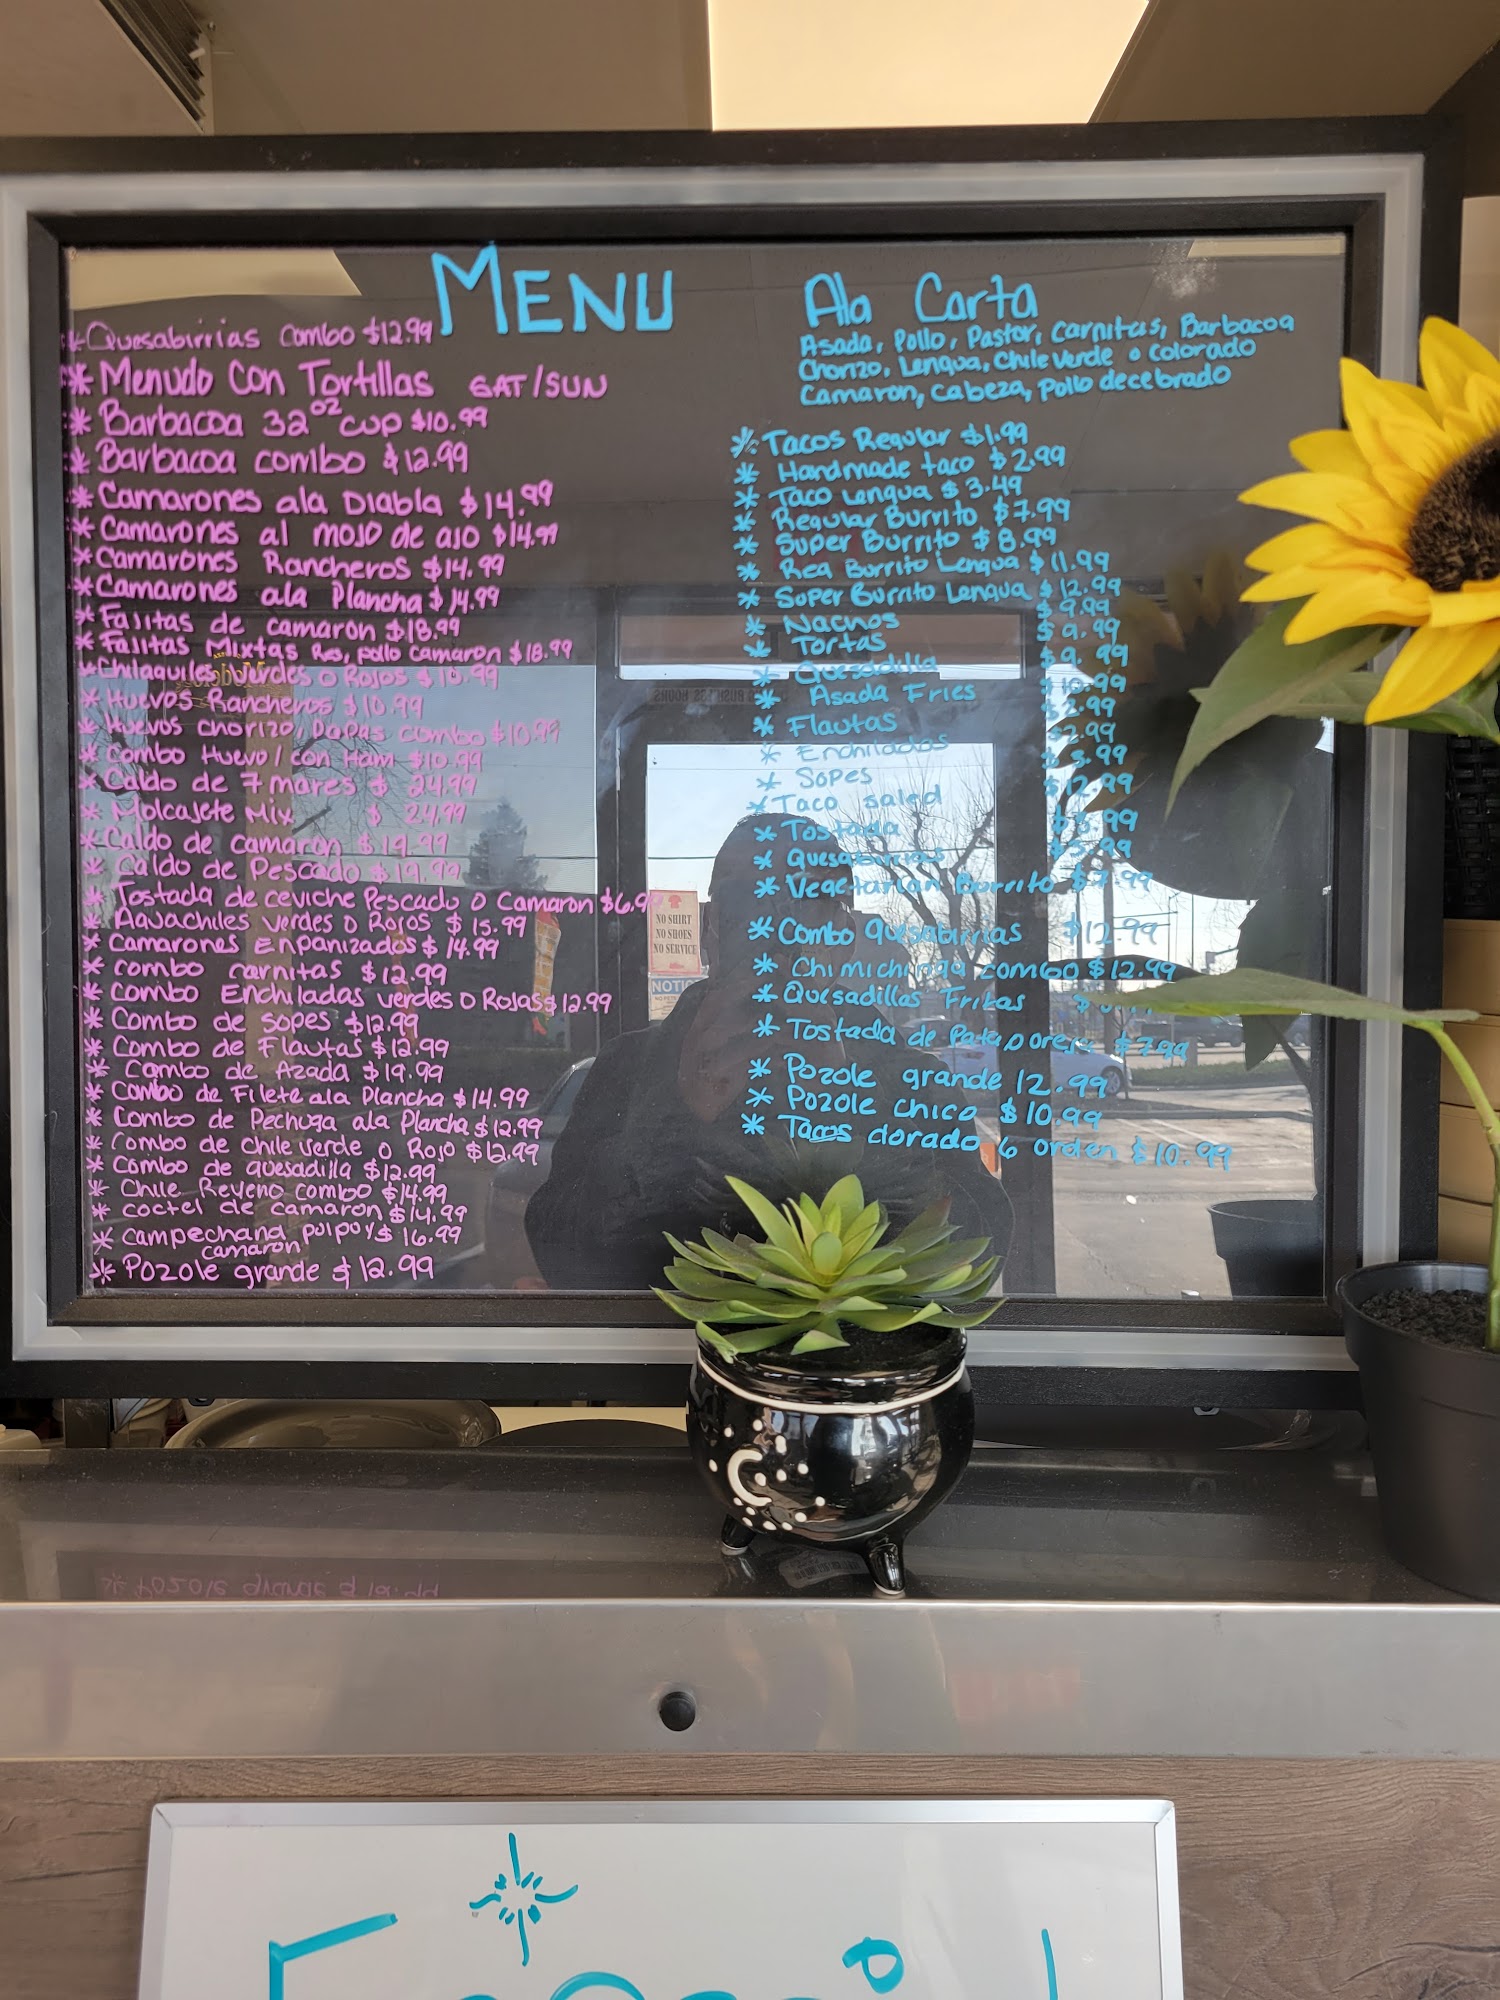 MENU
* Quesabirrias combo $12.99
* Menudo Con Tortillas SAT/SUN
* Barbacoa 32oz cup $10.99
* Barbacoa combo $12.99
* Camarones ala Diabla $14.99
* Camarones al mojo de ajo $14.99
* Camarones Rancheros $14.99
* Camarones ala Plancha $14.99
* Fajitas de camaron $18.99
* Fajitas Mixtas Res, pollo camaron $18.99
* Chilaquiles verdes o Rojos $10.99
* Huevos Rancheros $10.99
* Huevos chorizo, papas combo $10.99
* Combo Huevo / con Ham $10.99
* Caldo de 7 mares $ 24.99
* Molcajete Mix $ 24.99
* Caldo de camaron $19.99
* Caldo de Pescado $19.99
* Tostada de ceviche Pescado o Camaron $6.99
* Aguachiles verdes o Rojos $15.99
* Camarones Enpanizados $14.99
* combo carnitas $12.99
* Combo Enchiladas verdes o Rojas $12.99
* Combo de Sopes $12.99
* Combo de Flautas $12.99
* Combo de Azada $19.99
* Combo de Filete ala Plancha $14.99
* Combo de Pechuga ala Plancha $12.99
* Combo de Chile verde o Rojo $12.99
* Combo de quesadilla $12.99
* Chile Reyeno combo $14.99
* coctel de camaron $14.99
* campechana polpo y $16.99
camaron
* Pozole grande $12.99
Ala Carta
Asada, Pollo, Pastor, Carnitas, Barbacoa
Chorizo, Lengua, Chile verde o Colorado
Camaron, Cabeza, Pollo decebrado
* Tacos Regular $1.99
* Handmade taco $2.99
* Taco Lengua $3.49
* Regular Burrito $7.99
* Super Burrito $8.99
* Rea Burrito Lengua $11.99
* Super Burrito Lengua $12.99
* Nachos $9.99
* Tortas $9.99
* Quesadilla $9.99
* Asada Fries $10.99
* Flautas $2.99
* Enchiladas $2.99
* Sopes $3.99
* Taco salad $12.99
* Tostada
* Quesabirrias
* Vegetarian Burrito $7.99
* Combo Quesabirrias $12.99
* Chimichanga combo $12.99
* Quesadillas Fritas $
* Tostada de $7.99
* Pozole grande 12.99
* Pozole chico $10.99
* Tacos dorado 6 orden $10.99
NO SHIRT
NO SHOES
NO SERVICE